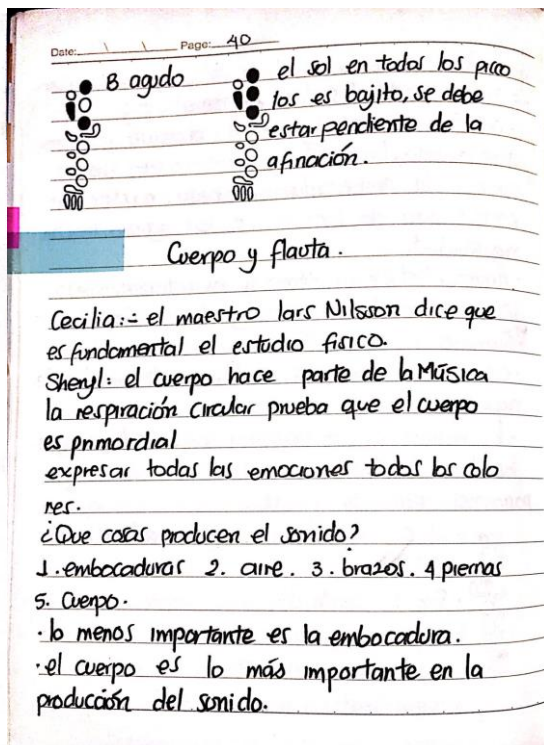 Date: \ \ Page: 40
B agudo
el sol en todos los picco
los es bajito, se debe
estar pendiente de la
afinación.
Cuerpo y flauta.
Cecilia:- el maestro lars Nilsson dice que
es fundamental el estudio fisico.
Sheryl: el cuerpo hace parte de la Música
la respiración circular prueba que el cuerpo
es primordial
expresar todas las emociones todos los colo
res.
¿Que cosas producen el sonido?
1. embocaduras 2. aire. 3. brazos. 4 piernas
5. Cuerpo.
· lo menos importante es la embocadura.
· el cuerpo es lo más importante en la
producción del sonido.